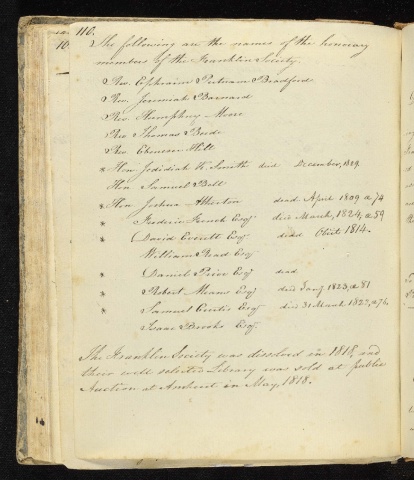 110.
The following are the names of the honorary
members of the Franklin Society.
Rev. Ephraim Putnam Bradford
Rev. Jeremiah Barnard
Rev. Humphrey Moore
Rev. Thomas Beede
Rev. Ebenezer Hill
* Hon. Jedidiah K. Smith died December, 1829.
Hon Samuel Bell
* Hon Joshua Atherton died April 1809 æ 74
* Frederic French Esq. died March, 1824, æ 59
* David Everett Esq died Ohio 1814.
William Read Esq
* Daniel Esq dead
* Robert Means Esq died Jany 1823, æ 81
* Samuel Curtis Esq died 31 March 1822, æ 76.
Isaac Brooks Esq.
The Franklin Society was dissolved in 1818, and
their well selected Library was sold at public
Auction at Amherst in May, 1818.